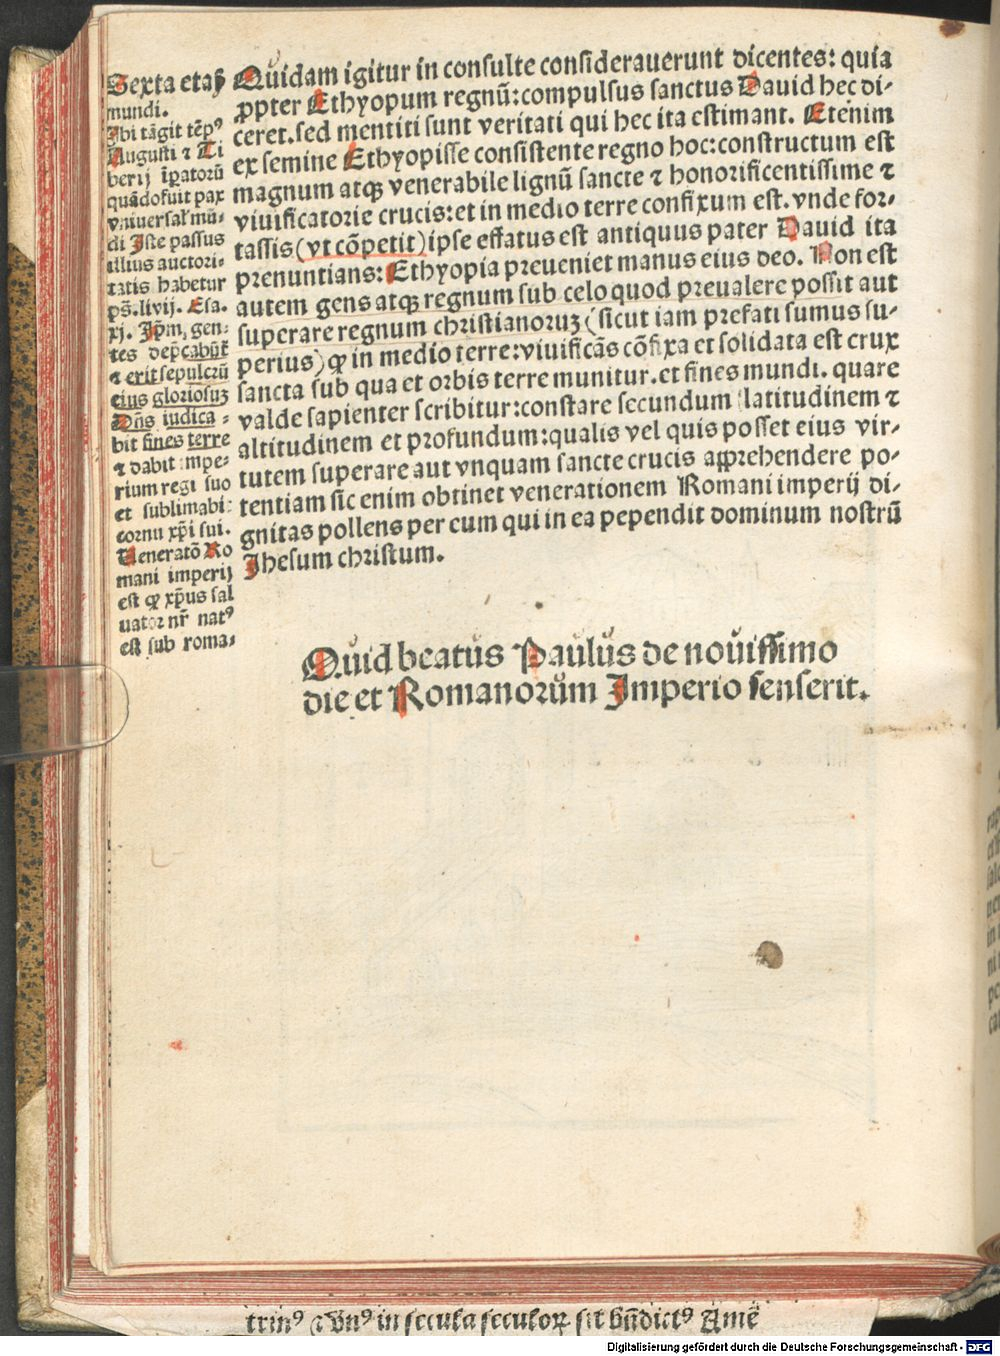 Sexta etaꝫ
mundi.
Ibi tãgit tẽpꝰ
Augusti ⁊ Ti
berij ĩꝑatorũ
quãdo fuit pax
vniuersal' mũ-
di Iste passus
illius auctori-
tatis habetur
ps̃. lvij. Esa.
xj. Ip̃m, gen-
tes dep̃cabũt̃
⁊ erit sepulcrũ
eius gloriosuꝫ
Dñs iudica-
bit fines terre
⁊ dabit impe-
rium regi suo
et sublimabit
cornu xp̃i sui.
Veneratõ Ro
mani imperij
est ꝙ xp̃us sal
uator nr̃ natꝰ
est sub roma-
Quidam igitur in consulte considerauerunt dicentes: quia
ꝓpter Ethyopum regnũ: compulsus sanctus Dauid hec di-
ceret. sed mentiti sunt veritati qui hec ita estimant. Etenim
ex semine Ethyopisse consistente regno hoc: constructum est
magnum atqꝫ venerabile lignũ sancte ⁊ honorificentissime ⁊
viuificatorie crucis: et in medio terre confixum est. vnde for-
tassis (vt cõpetit) ipse effatus est antiquus pater Dauid ita
prenuntians: Ethyopia preueniet manus eius deo. Non est
autem gens atqꝫ regnum sub celo quod preualere possit aut
superare regnum christianoruꝫ (sicut iam prefati sumus su-
perius) ꝙ in medio terre: viuificãs cõfixa et solidata est crux
sancta sub qua et orbis terre munitur. et fines mundi. quare
valde sapienter scribitur: constare secundum latitudinem ⁊
altitudinem et profundum: qualis vel quis posset eius vir-
tutem superare aut vnquam sancte crucis apprehendere po-
tentiam sic enim obtinet venerationem Romani imperij di-
gnitas pollens per eum qui in ea pependit dominum nostrũ
Jhesum christum.
Quid beatus Paulus de nouissimo
die et Romanorum Imperio senserit.
trinꝰ ⁊ vnꝰ in secula seculoꝝ sit bñdictꝰ Amẽ
Digitalisierung gefördert durch die Deutsche Forschungsgemeinschaft - DFG